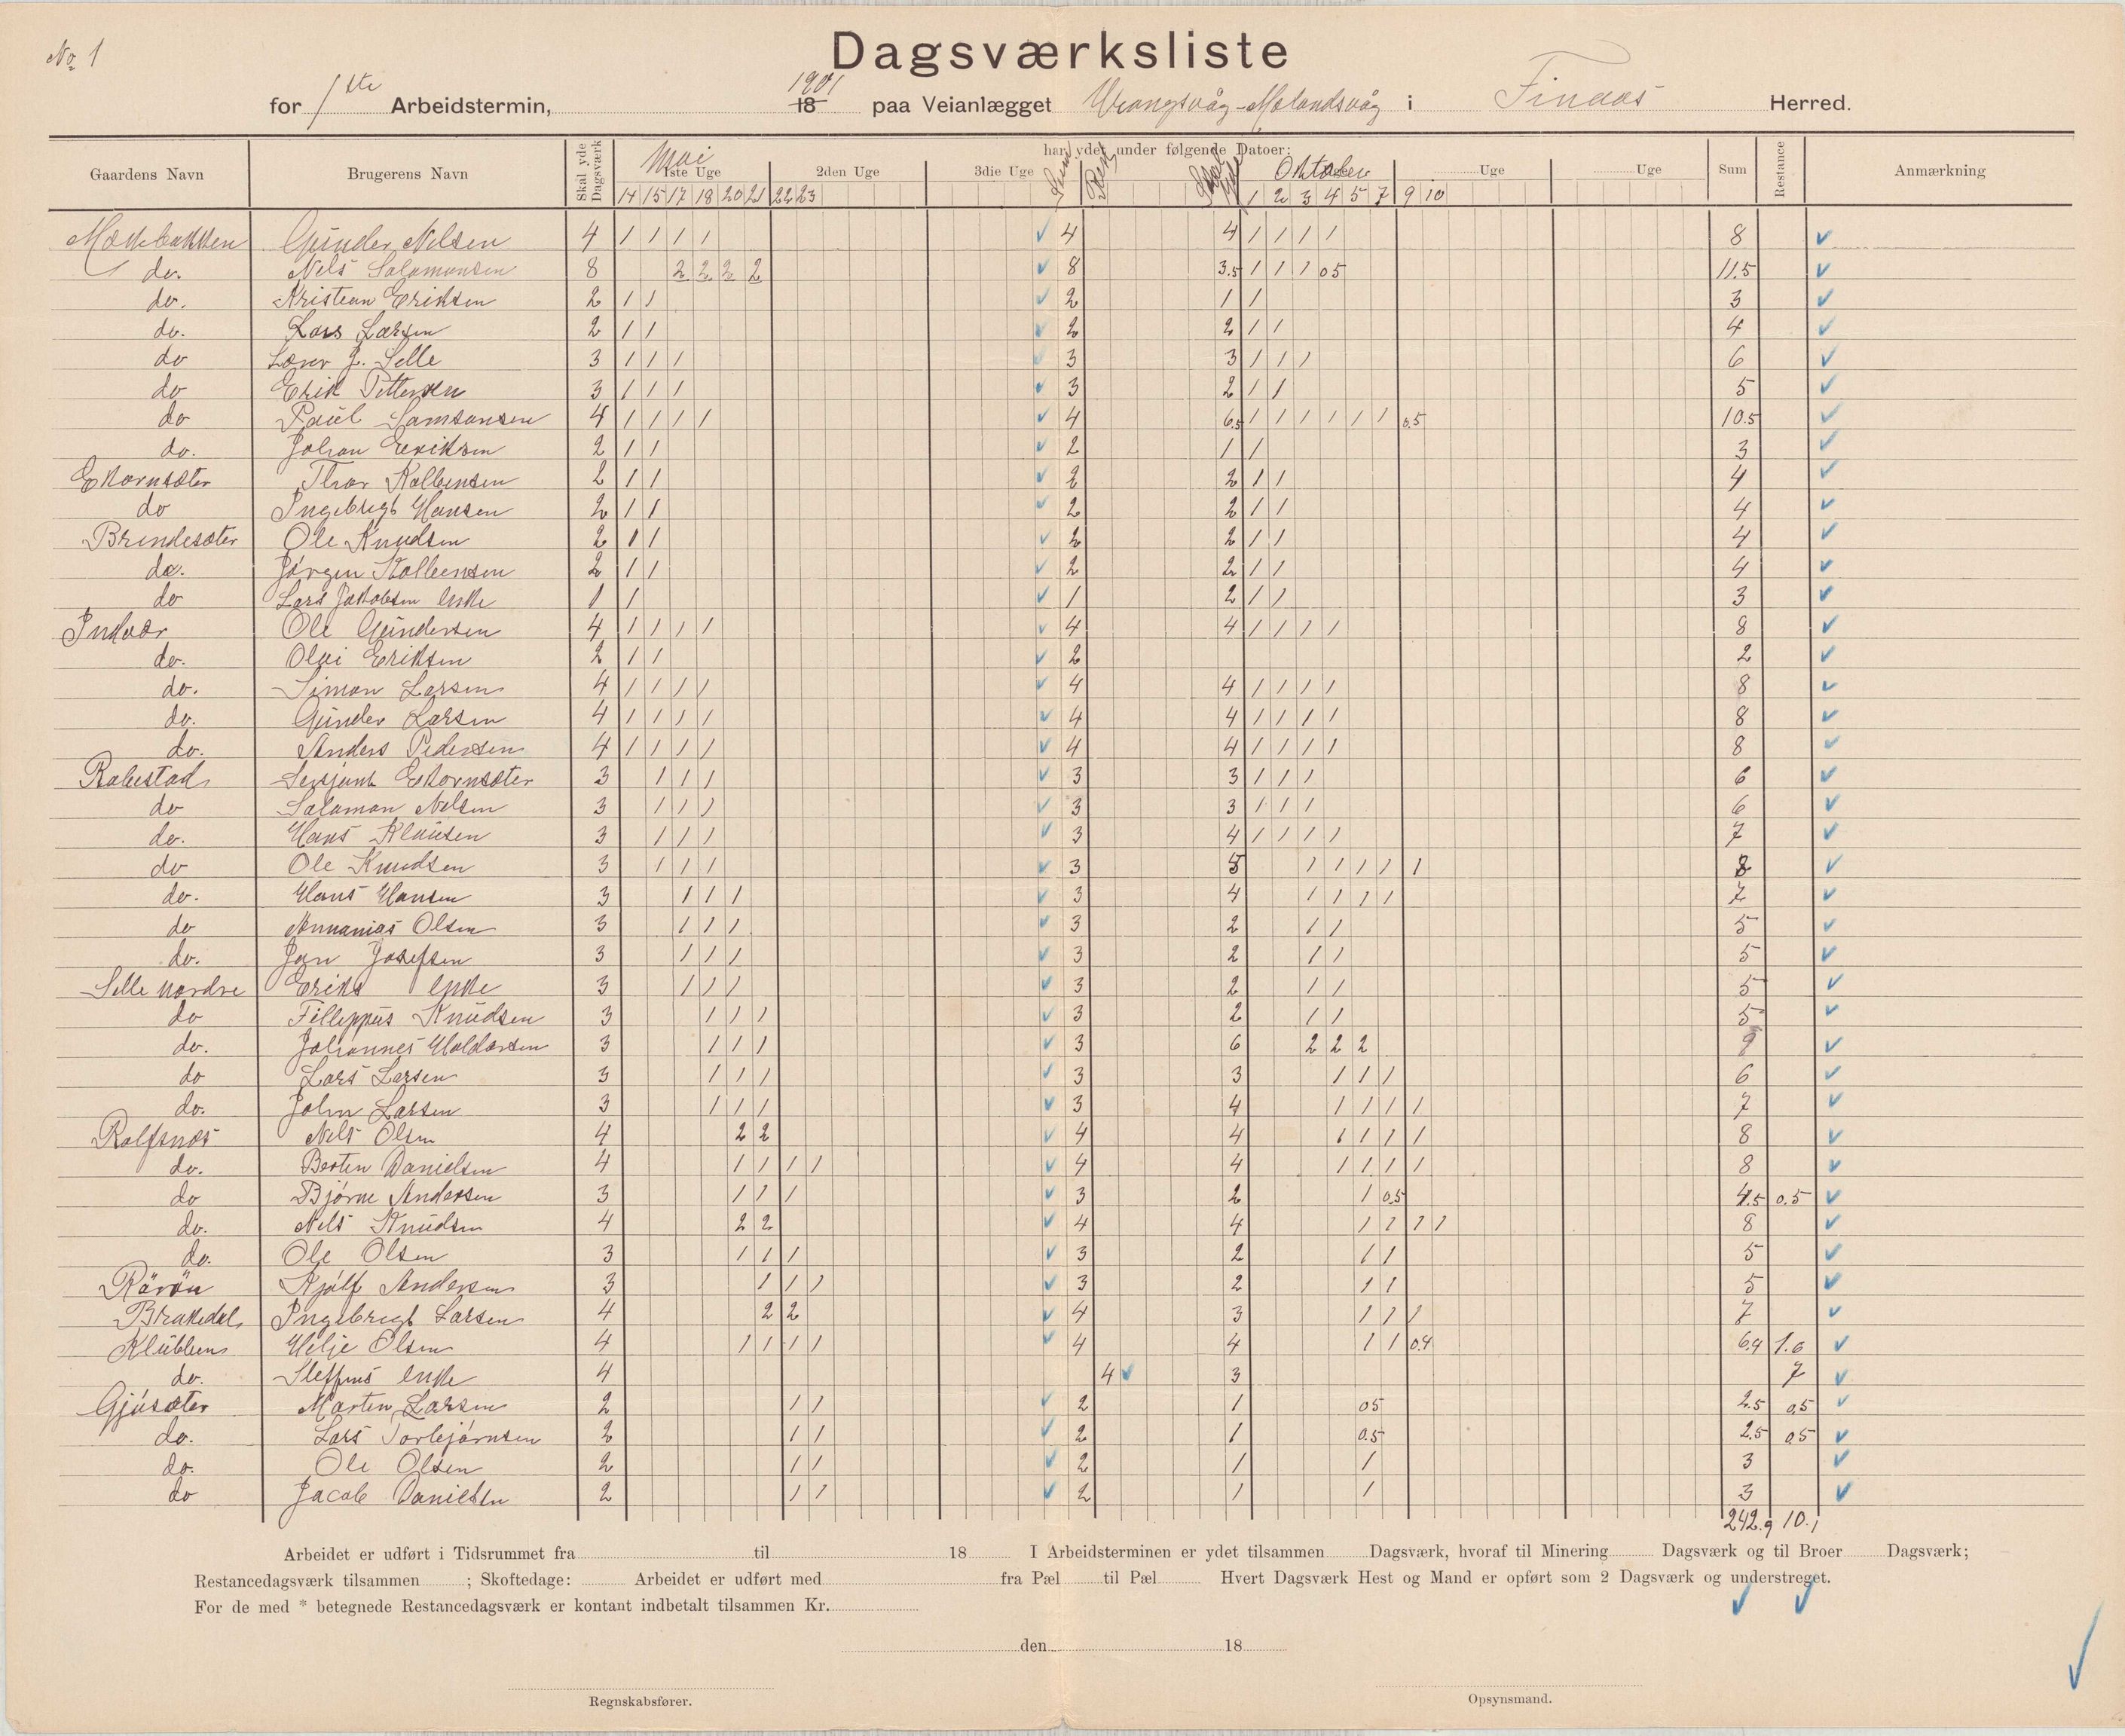 No 1
Dagsværksliste
for 1ste Arbeidstermin, 1901 18 paa Veianlægget Vrangsvåg-Mølandsvåg i Finaas Herred.
Gaardens Navn Brugerens Navn Skal yde Dagsværk har ydet under følgende Datoer: Sum Restance Anmærkning
Mai 1ste Uge 2den Uge 3die Uge Sum Rest Skal yde Oktober Uge Uge
14 15 17 18 20 21 22 23 1 2 3 4 5 7 9 10
Gunder Nilsen 4 1 1 1 1 4 4 1 1 1 1 8
do. Nels Salamonsen 8 2 2 2 2 8 3.5 1 1 1 05 11.5
do. Kristian Eriksen 2 1 1 2 1 1 3
do. Lars Larsen 2 1 1 2 2 1 1 4
do J. Selle 3 1 1 1 3 3 1 1 1 6
do Erik Pettersen 3 1 1 1 3 2 1 1 5
do Paul Samsonsen 4 1 1 1 1 4 6.5 1 1 1 1 1 1 0.5 10.5
do. Johan Eriksen 2 1 1 2 1 1 3
Ekornsæter Thor Kolbensen 2 1 1 2 2 1 1 4
do Ingebrigt Hansen 2 1 1 2 2 1 1 4
Brendesæter Ole Knudsen 2 1 1 2 2 1 1 4
do. Jørgen Kolbensen 2 1 1 2 2 1 1 4
do Lars Jakobsen Enke 1 1 1 2 1 1 3
Indvær Ole Gundersen 4 1 1 1 1 4 4 1 1 1 1 8
do. Olai Eriksen 2 1 1 2 2
do. Simon Larsen 4 1 1 1 1 4 4 1 1 1 1 8
do. Gunder Larsen 4 1 1 1 1 4 4 1 1 1 1 8
do. Anders Pedersen 4 1 1 1 1 4 4 1 1 1 1 8
Rabestad Sersjant Ekornsæter 3 1 1 1 3 3 1 1 1 6
do Salamon Nelsen 3 1 1 1 3 3 1 1 1 6
do. Hans Klausen 3 1 1 1 3 4 1 1 1 1 7
do Ole Knudsen 3 1 1 1 3 5 1 1 1 1 1 8
do. Hans Hansen 3 1 1 1 3 4 1 1 1 1 7
do Annanias Olsen 3 1 1 1 3 2 1 1 5
do. Jan Josefsen 3 1 1 1 3 2 1 1 5
Selle nordre Eriks Enke 3 1 1 1 3 2 1 1 5
do Fillippus Knudsen 3 1 1 1 3 2 1 1 5
do. Johannes Haldorsen 3 1 1 1 3 6 2 2 2 9
do Lars Larsen 3 1 1 1 3 3 1 1 1 6
do. John Larsen 3 1 1 1 3 4 1 1 1 1 7
Rolfsnes Nels Olsen 4 2 2 4 4 1 1 1 1 8
do. Berten Danielsen 4 1 1 1 1 4 4 1 1 1 1 8
do Bjørne Andersen 3 1 1 1 3 2 1 0.5 4.5 0.5
do. Nels Knudsen 4 2 2 4 4 1 1 1 1 8
do. Ole Olsen 3 1 1 1 3 2 1 1 5
Rørøn Kjølf Andersen 3 1 1 1 3 2 1 1 5
Brakedal Ingebrigt Larsen 4 2 2 4 3 1 1 1 7
Klubben Helje Olsen 4 1 1 1 1 4 4 1 1 0.4 6.4 1.6
do. Steffens Enke 4 4 3 7
Gjøsæter Marten Larsen 2 1 1 2 1 05 2.5 0.5
do. Lars Torbjørnsen 2 1 1 2 1 0.5 2.5 0.5
do. Ole Olsen 2 1 1 2 1 1 3
do Jacob Danielsen 2 1 1 2 1 1 3
242.9 10.1
Arbeidet er udført i Tidsrummet fra til 18 I Arbeidsterminen er ydet tilsammen Dagsværk, hvoraf til Minering Dagsværk og til Broer Dagsværk;
Restancedagsværk tilsammen ; Skoftedage: Arbeidet er udført med fra Pæl til Pæl Hvert Dagsværk Hest og Mand er opført som 2 Dagsværk og understreget.
For de med * betegnede Restancedagsværk er kontant indbetalt tilsammen Kr.
den 18
Regnskabsfører. Opsynsmand.